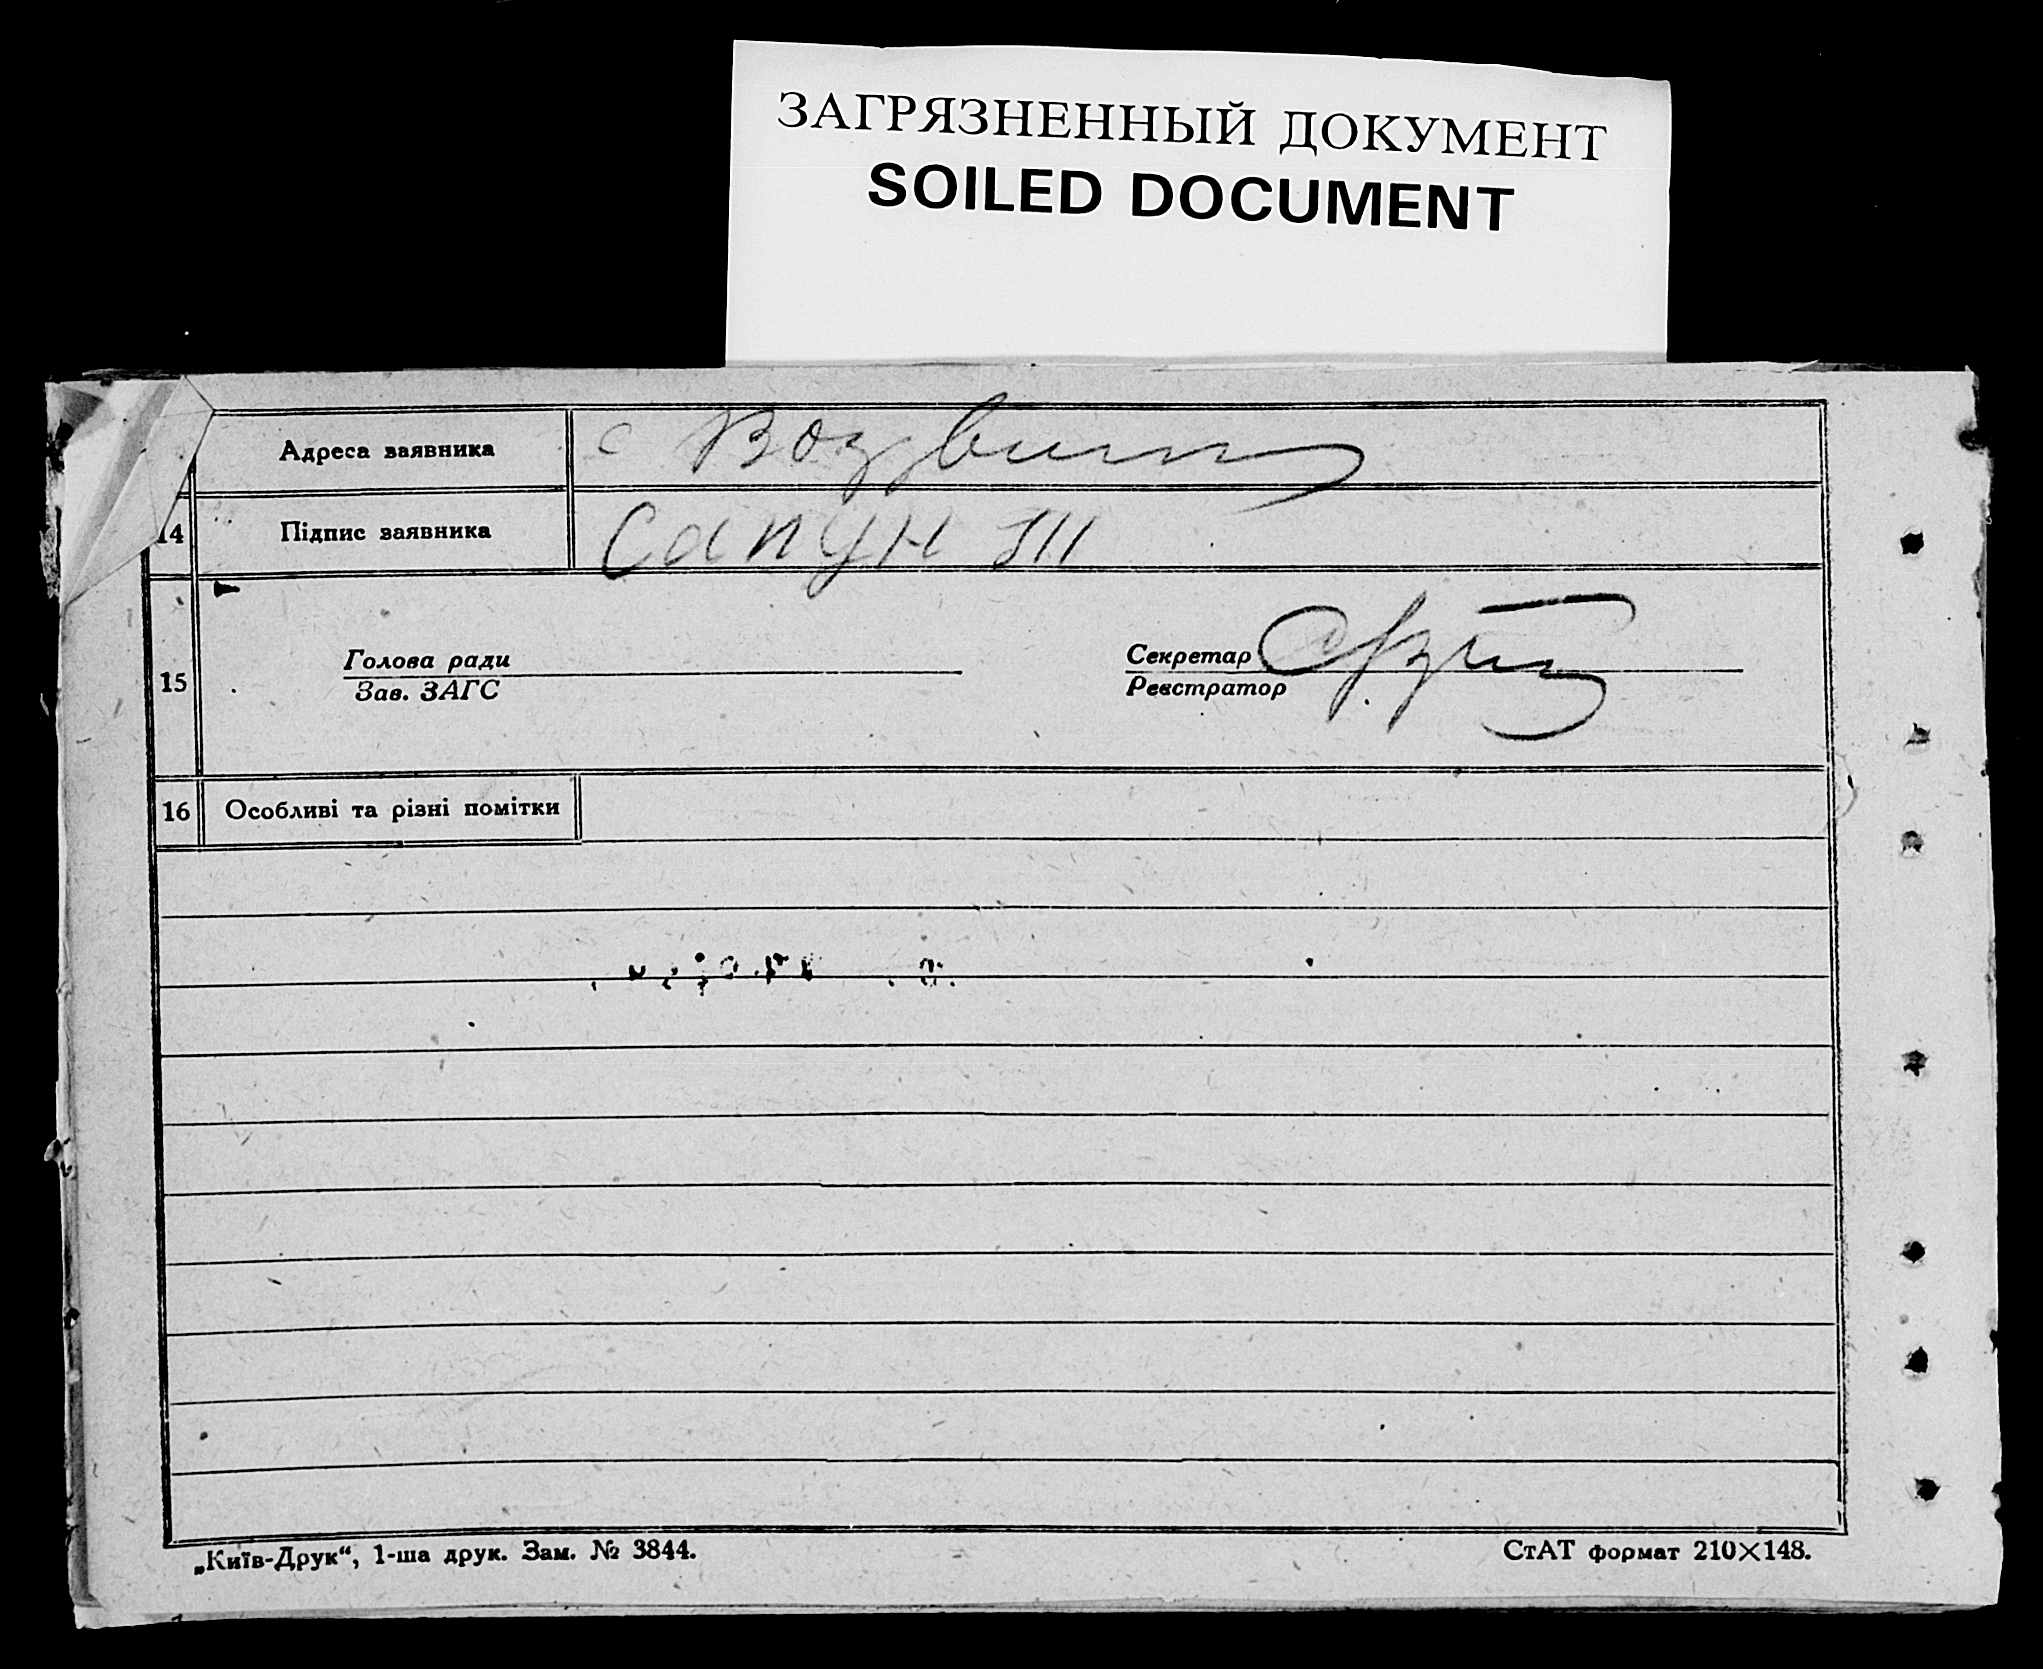 ЗАГРЯЗНЕННЫЙ ДОКУМЕНТ
SOILED DOCUMENT
Адреса заявника с
14 Підпис заявника Сапун
15 Голова ради Секретар
Зав. ЗАГС Реєстратор
16 Особливі та різні помітки
„Київ-Друк“, 1-ша друк. Зам. № 3844. СтАТ формат 210×148.